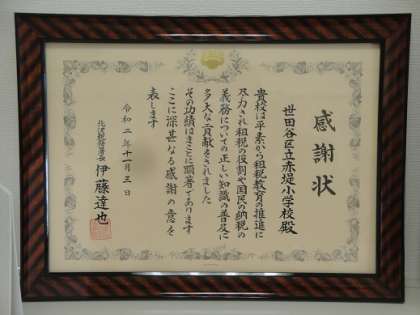 感謝状
世田谷区立赤堤小学校殿
貴校は平素から租税教育の推進に
尽力され租税の役割や国民の納税の
義務についての正しい知識の普及に
多大な貢献をされました
その功績はまことに顕著であります
ここに深甚なる感謝の意を
表します
令和二年十一月三日
北沢税務署長 伊藤達也